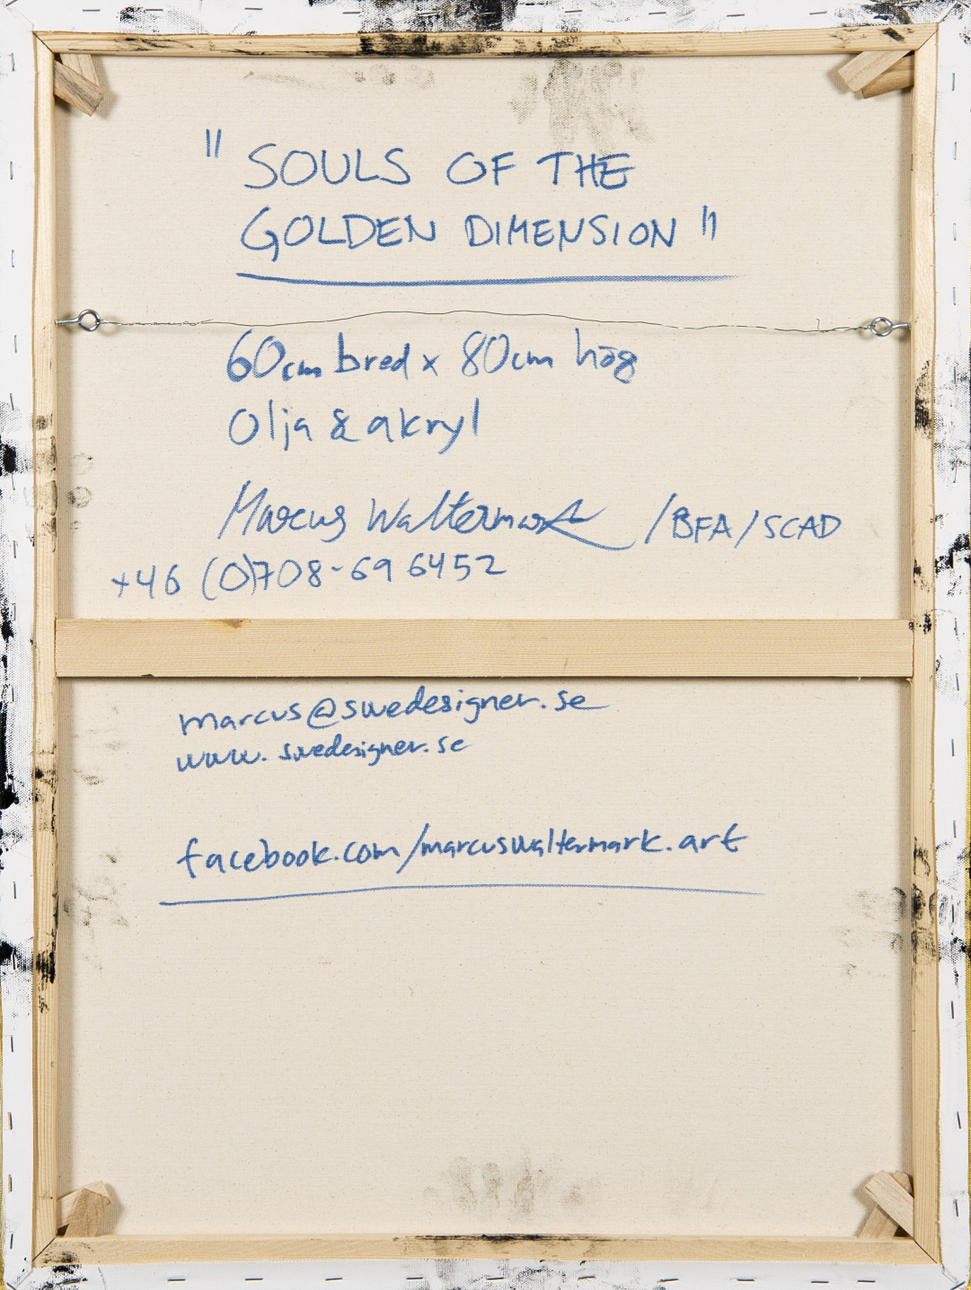 "SOULS OF THE
GOLDEN DIMENSION"
60cm bred x 80cm hög
Olja & akryl
Marcus Waltermark /BFA/SCAD
+46 (0)708-69 6452
marcus@swedesigner.se
www.swedesigner.se
facebook.com/marcuswaltermark.art